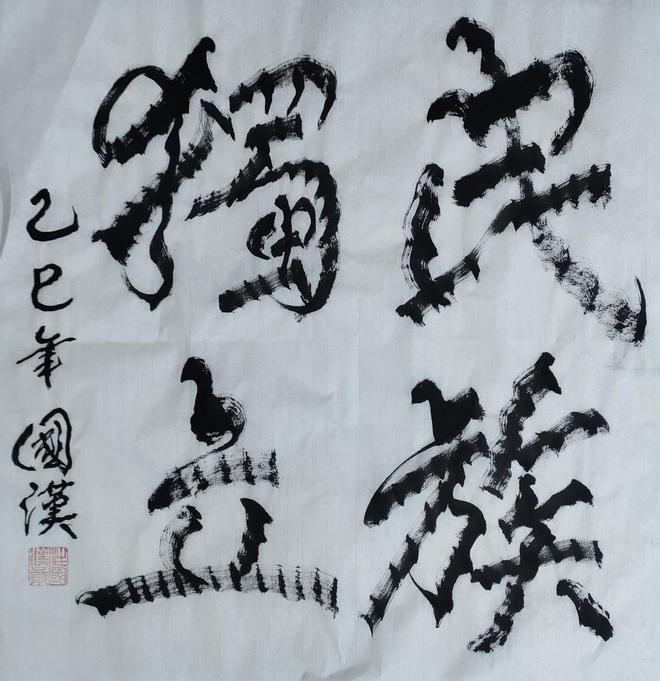 民族
獨立
乙巳年國漢